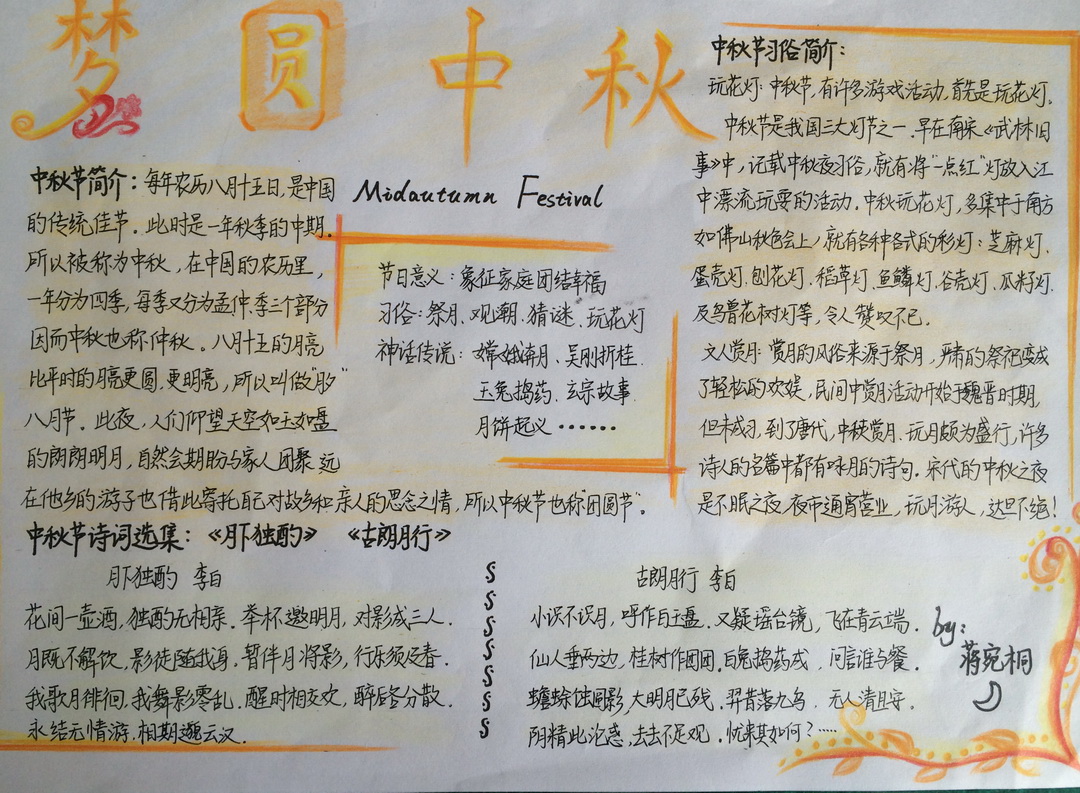 梦圆中秋
中秋节简介：每年农历八月十五日，是中国
的传统佳节．此时是一年秋季的中期．
所以被称为中秋，在中国的农历里，
一年分为四季，每季又分为孟仲季三个部分
因而中秋也称仲秋。八月十五的月亮
比平时的月亮更圆，更明亮，所以叫做“月夕”
八月节．此夜，人们仰望天空如玉如盘
的朗朗明月，自然会期盼与家人团聚．远
在他乡的游子也借此寄托自己对故乡和亲人的思念之情，所以中秋节也称“团圆节”。
Midautumn Festival
节日意义：象征家庭团结幸福
习俗：祭月．观潮．猜谜．玩花灯
神话传说：嫦娥奔月．吴刚折桂．
玉兔捣药．玄宗故事．
月饼起义……
中秋节习俗简介：
玩花灯：中秋节，有许多游戏活动，首先是玩花灯。
中秋节是我国三大灯节之一．早在南宋《武林旧
事》中，记载中秋夜习俗，就有将“一点红”灯放入江
中漂流玩耍的活动．中秋玩花灯，多集中于南方
如佛山秋色会上，就有各种各式的彩灯：芝麻灯．
蛋壳灯．刨花灯．稻草灯．鱼鳞灯．谷壳灯．瓜籽灯．
及鸟兽花树灯等，令人赞叹不已。
文人赏月：赏月的风俗来源于祭月，严肃的祭祀变成
了轻松的欢娱，民间中赏月活动开始于魏晋时期，
但未成习．到了唐代，中秋赏月．玩月颇为盛行，许多
诗人的名篇中都有咏月的诗句．宋代的中秋之夜
是不眠之夜．夜市通宵营业，玩月游人，达旦不绝！
中秋节诗词选集：《月下独酌》 《古朗月行》
月下独酌 李白
花间一壶酒，独酌无相亲．举杯邀明月，对影成三人．
月既不解饮，影徒随我身，暂伴月将影，行乐须及春．
我歌月徘徊．我舞影零乱．醒时相交欢，醉后各分散．
永结无情游．相期邈云汉．
古朗月行 李白
小识不识月，呼作白玉盘．又疑瑶台镜，飞在青云端．
仙人垂两边，桂树作团团．白兔捣药成，问言谁与餐．
蟾蜍蚀圆影，大明月已残．羿昔落九乌．无人清且安．
阴精此沦惑，去去不足观．忧来其如何？……
by：
蒋宛桐